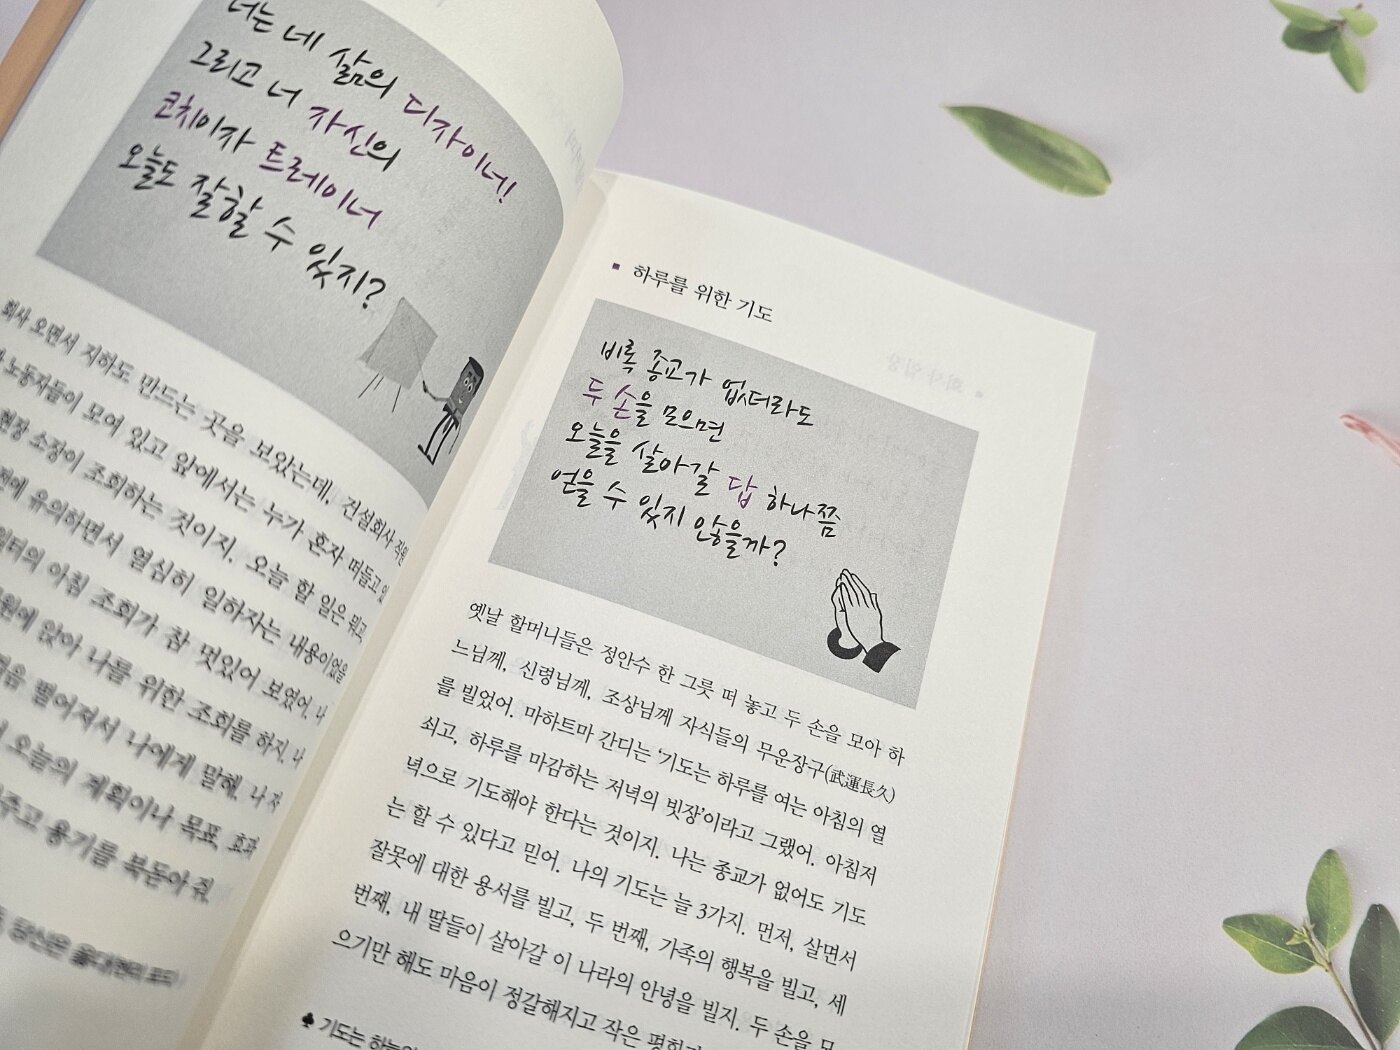 너는 네 삶의 디자이너!
그리고 너 자신의
코치이자 트레이너
오늘도 잘할 수 있지?
회사 오면서 지하도 만드는 곳을 보았는데, 건설회사 직원
노동자들이 모여 있고 앞에서는 누가 혼자 떠들고 있
현장 소장이 조회하는 것이지. 오늘 할 일은 뭐고,
전에 유의하면서 열심히 일하자는 내용이었을
일터의 아침 조회가 참 멋있어 보였어. 나
원에 앉아 나를 위한 조회를 하지. 나
떨어져서 나에게 말해. 나 자
오늘의 계획이나 목표, 효과
추고 용기를 북돋아 줘.
당신은
■ 하루를 위한 기도
비록 종교가 없더라도
두 손을 모으면
오늘을 살아갈 답 하나쯤
얻을 수 있지 않을까?
옛날 할머니들은 정안수 한 그릇 떠 놓고 두 손을 모아 하
느님께, 신령님께, 조상님께 자식들의 무운장구(武運長久)
를 빌었어. 마하트마 간디는 '기도는 하루를 여는 아침의 열
쇠고, 하루를 마감하는 저녁의 빗장'이라고 그랬어. 아침저
녁으로 기도해야 한다는 것이지. 나는 종교가 없어도 기도
는 할 수 있다고 믿어. 나의 기도는 늘 3가지. 먼저, 살면서
잘못에 대한 용서를 빌고, 두 번째, 가족의 행복을 빌고, 세
번째, 내 딸들이 살아갈 이 나라의 안녕을 빌지. 두 손을 모
으기만 해도 마음이 정갈해지고 작은
♠ 기도는